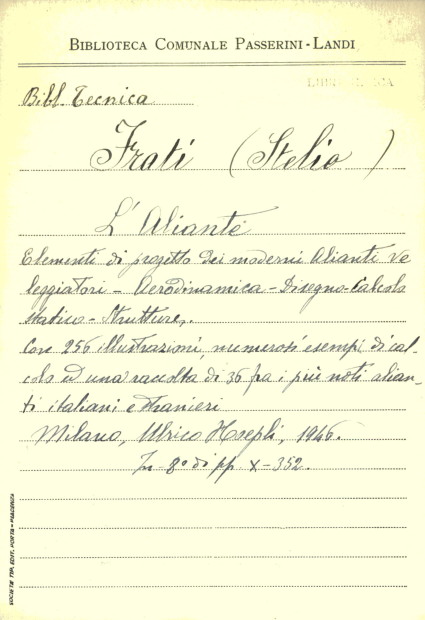 BIBLIOTECA COMUNALE PASSERINI-LANDI
Bibl. Tecnica
Frati (Stelio)
L'Aliante
Elementi di progetto dei moderni Alianti Ve
leggiatori - Aerodinamica - Disegno - Calcolo
statico - Strutture,.
Con 256 illustrazioni, numerosi esempi di cal-
colo ed una raccolta di 36 fra i più noti alian-
ti italiani e stranieri
Milano, Ulrico Hoepli, 1946.
In-8° di pp X-352.
SOCIETÀ TIP. EDIT. PORTA - PIACENZA